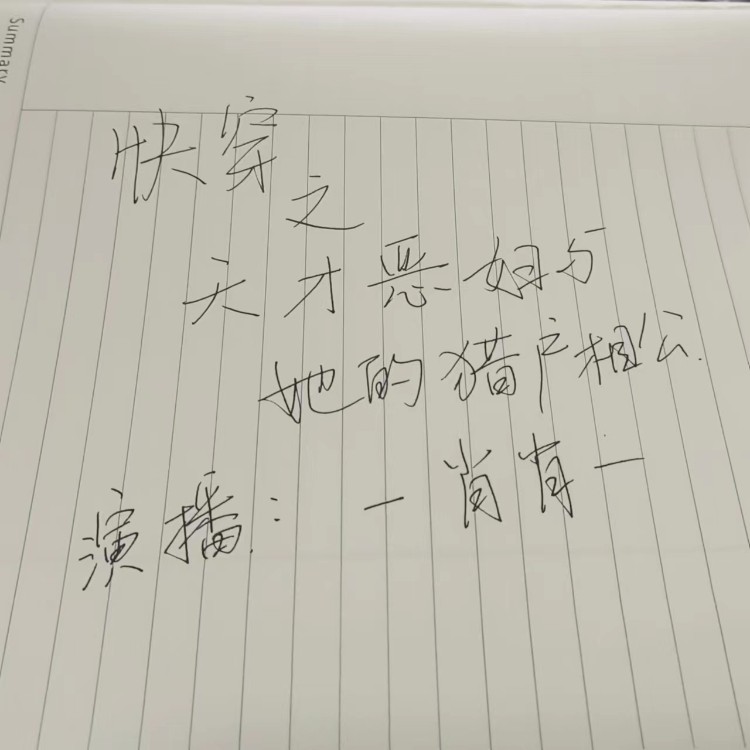 Summary
快穿
之
天才恶妞与
她的猎户相公.
演播：一肖肖一